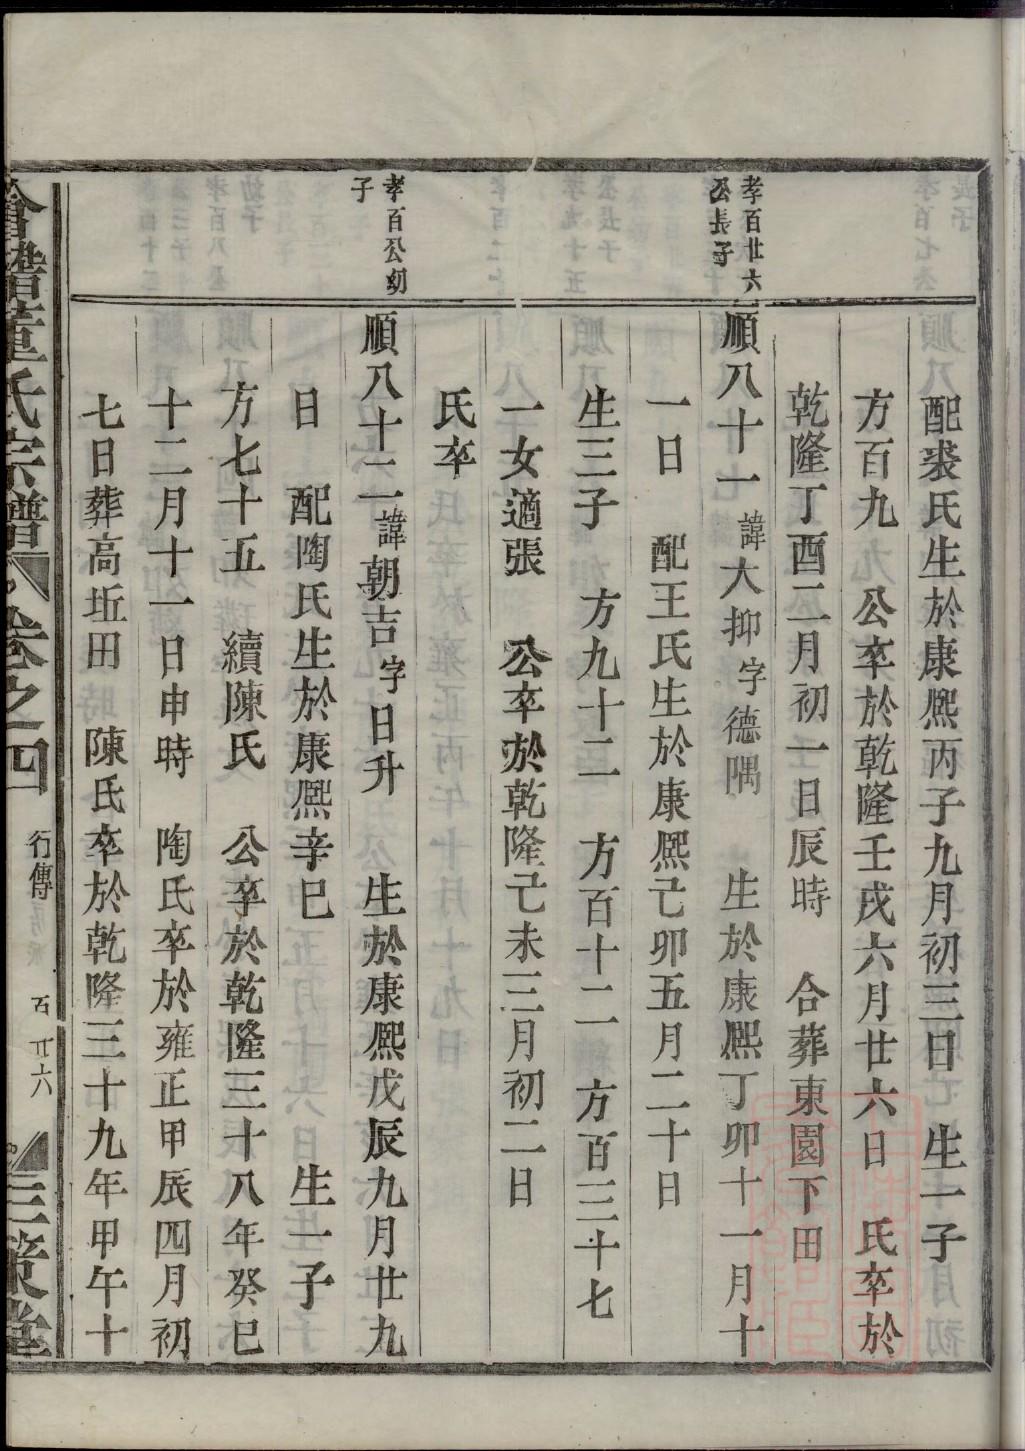 配裘氏生於康熙丙子九月初三日 生一子
方百九 公卒於乾隆壬戌六月廿六日 氏卒於
乾隆丁酉二月初一日辰時 合葬東園下田
孝百廿六
公長子
順八十一諱大抑字德隅 生於康熙丁卯十一月十
一日 配王氏生於康熙己卯五月二十日
生三子 方九十二 方百十二 方百三十七
一女適張 公卒於乾隆己未三月初二日
氏卒
孝百公幼
子
順八十二諱朝吉字日升 生於康熙戊辰九月廿九
日 配陶氏生於康熙辛巳 生一子
方七十五 續陳氏 公卒於乾隆三十八年癸巳
十二月十一日申時 陶氏卒於雍正甲辰四月初
七日葬高坵田 陳氏卒於乾隆三十九年甲午十
董氏宗譜 卷之四 行傳 三策堂